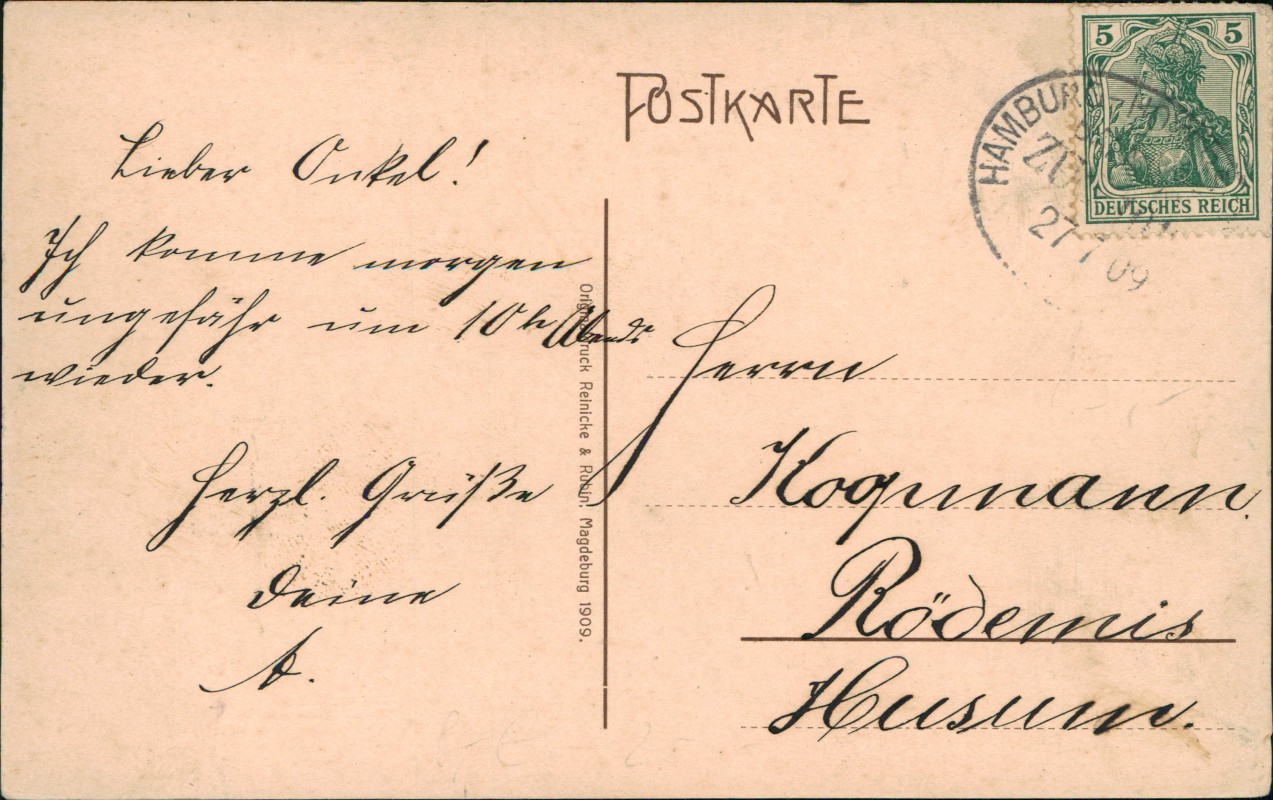 POSTKARTE
Lieber Onkel!
Ich komme morgen
ungefähr um 10 h Abends
wieder.
Herzl. Grüße
Deine
A.
Originaldruck Reinicke & Rubin, Magdeburg 1909.
Herrn
Koopmann.
Rödemis
Husum.
5 5
DEUTSCHES REICH
HAMBURG
ZUG
27 7 09